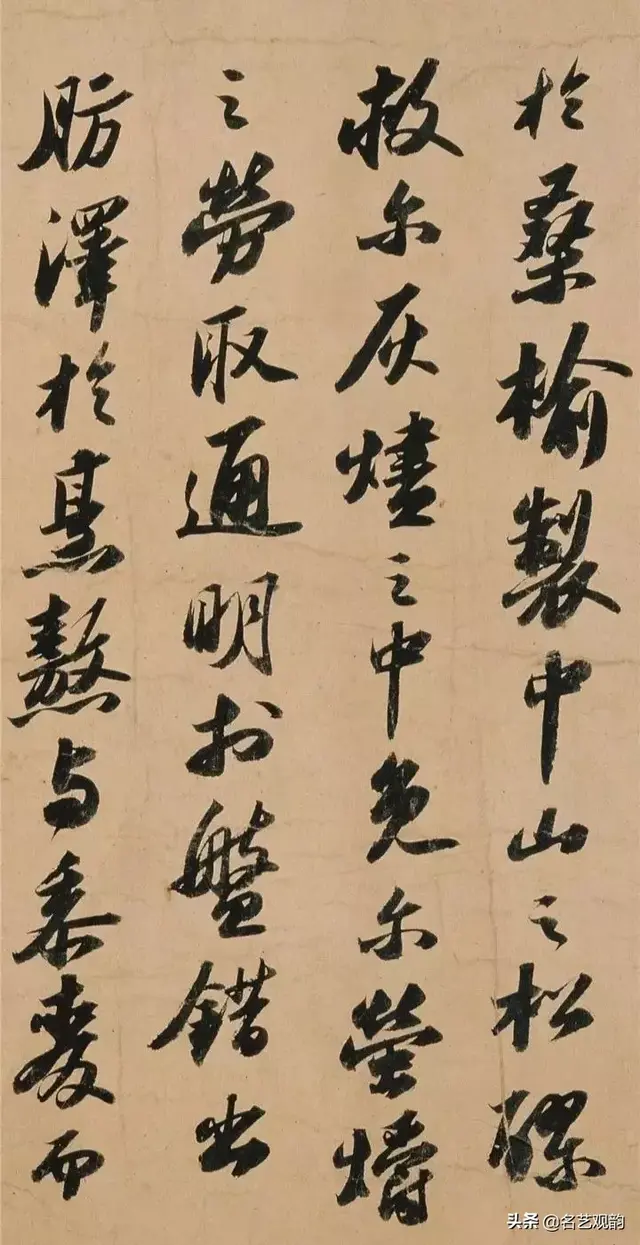 於桑榆製中山之松醪
救尔灰燼之中免尔螢爝
之勞取通明於盤錯出
肪澤於烹熬与黍麥而
头条 @名艺观韵